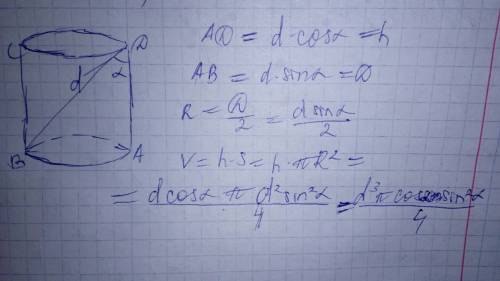 C D
d α
B A
AD = d·cosα = h
AB = d·sinα = D
R = D/2 = d sinα/2
V = h·S = h·πR² =
= dcosα π d² sin²α/4 = d³π cosα sin²α/4